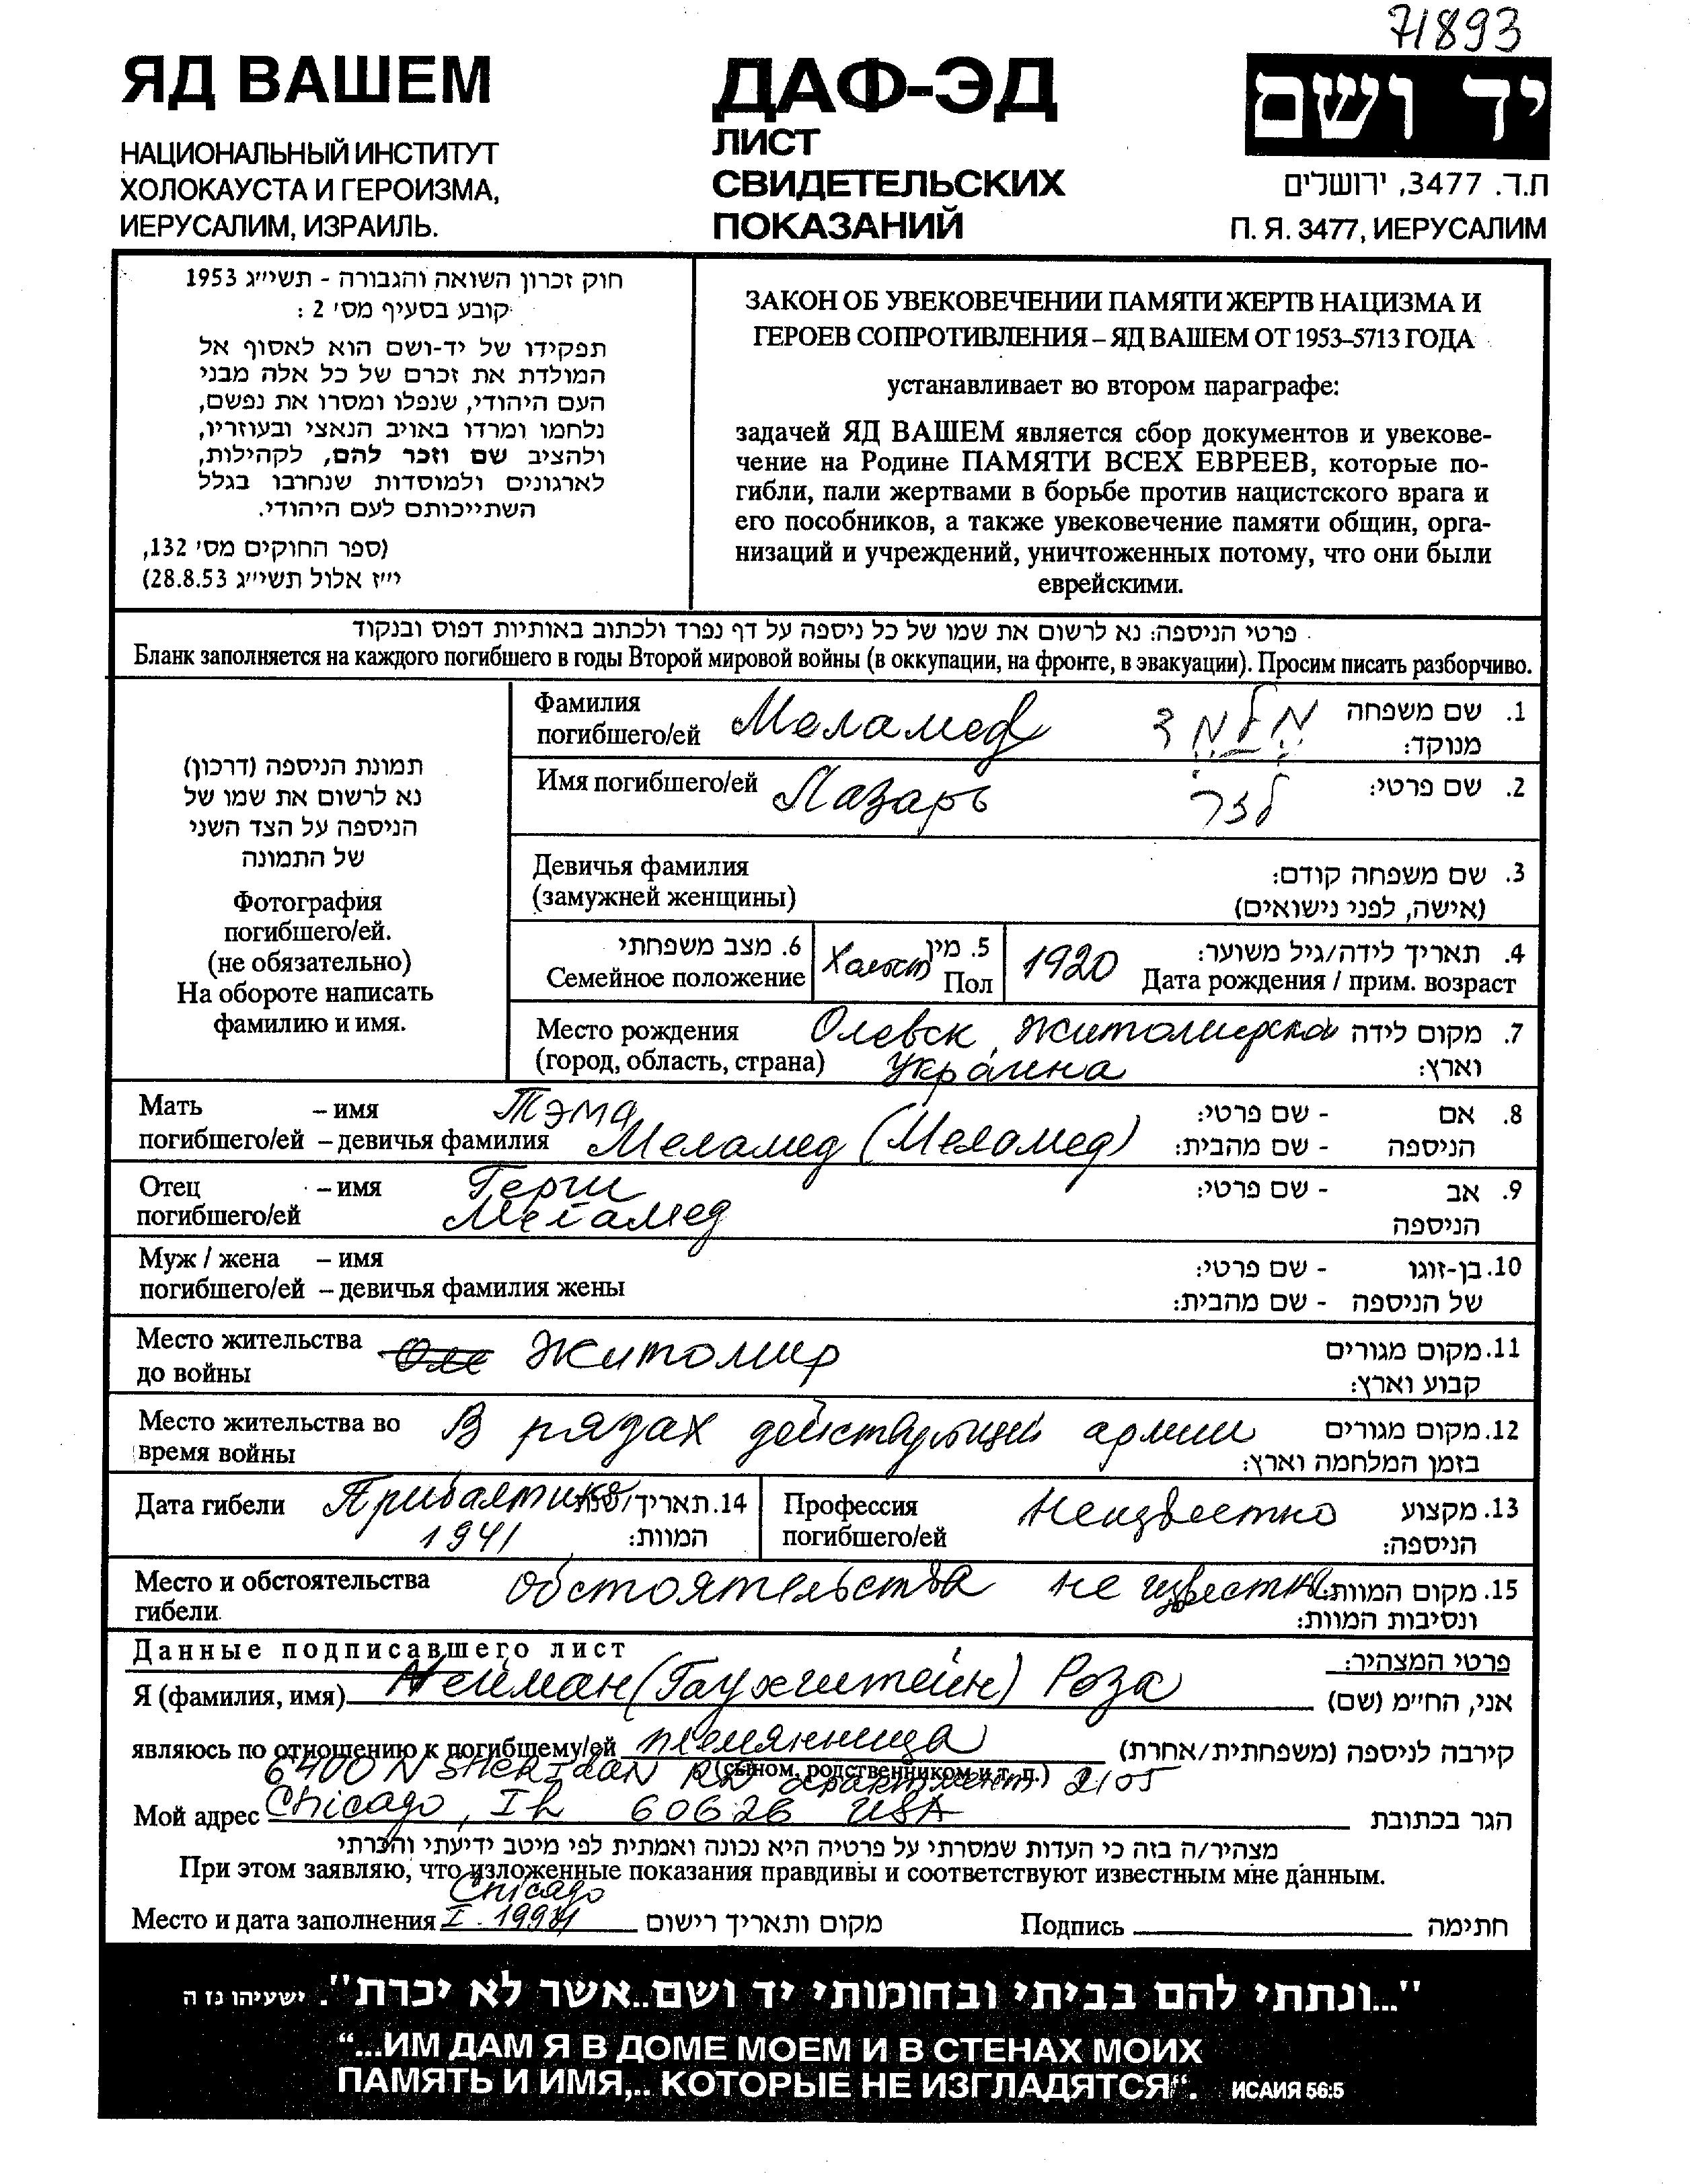 71893
ЯД ВАШЕМ
НАЦИОНАЛЬНЫЙ ИНСТИТУТ
ХОЛОКАУСТА И ГЕРОИЗМА,
ИЕРУСАЛИМ, ИЗРАИЛЬ.
ДАФ-ЭД
ЛИСТ
СВИДЕТЕЛЬСКИХ
ПОКАЗАНИЙ
יד ושם
ת.ד. 3477, ירושלים
П. Я. 3477, ИЕРУСАЛИМ
חוק זכרון השואה והגבורה - תשי״ג 1953
קובע בסעיף מס׳ 2 :
תפקידו של יד-ושם הוא לאסוף אל
המולדת את זכרם של כל אלה מבני
העם היהודי, שנפלו ומסרו את נפשם,
נלחמו ומרדו באויב הנאצי ובעוזריו,
ולהציב שם וזכר להם, לקהילות,
לארגונים ולמוסדות שנחרבו בגלל
השתייכותם לעם היהודי.
(ספר החוקים מס׳ 132,
י״ז אלול תשי״ג 28.8.53)
ЗАКОН ОБ УВЕКОВЕЧЕНИИ ПАМЯТИ ЖЕРТВ НАЦИЗМА И
ГЕРОЕВ СОПРОТИВЛЕНИЯ – ЯД ВАШЕМ ОТ 1953–5713 ГОДА
устанавливает во втором параграфе:
задачей ЯД ВАШЕМ является сбор документов и увекове-
чение на Родине ПАМЯТИ ВСЕХ ЕВРЕЕВ, которые по-
гибли, пали жертвами в борьбе против нацистского врага и
его пособников, а также увековечение памяти общин, орга-
низаций и учреждений, уничтоженных потому, что они были
еврейскими.
פרטי הניספה: נא לרשום את שמו של כל ניספה על דף נפרד ולכתוב באותיות דפוס ובנקוד
Бланк заполняется на каждого погибшего в годы Второй мировой войны (в оккупации, на фронте, в эвакуации). Просим писать разборчиво.
תמונת הניספה (דרכון)
נא לרשום את שמו של
הניספה על הצד השני
של התמונה
Фотография
погибшего/ей.
(не обязательно)
На обороте написать
фамилию и имя.
Фамилия
погибшего/ей Меламед מלמד 1. שם משפחה
מנוקד:
Имя погибшего/ей Лазарь לזר 2. שם פרטי:
Девичья фамилия
(замужней женщины)
3. שם משפחה קודם:
(אישה, לפני נישואים)
6. מצב משפחתי
Семейное положение Холост
5. מין
Пол
1920 4. תאריך לידה/גיל משוער:
Дата рождения / прим. возраст
Место рождения Олевск, Житомирская 7. מקום לידה
(город, область, страна) Украина וארץ:
Мать – имя Тэма 8. אם - שם פרטי:
погибшего/ей – девичья фамилия Меламед (Меламед) הניספה - שם מהבית:
Отец – имя Герш 9. אב - שם פרטי:
погибшего/ей Меламед הניספה
Муж / жена – имя 10. בן-זוגו - שם פרטי:
погибшего/ей – девичья фамилия жены של הניספה - שם מהבית:
Место жительства Житомир 11. מקום מגורים
до войны קבוע וארץ:
Место жительства во В рядах действующей армии 12. מקום מגורים
время войны בזמן המלחמה וארץ:
Дата гибели Прибалтика 14. תאריך/שנת
1941 המוות:
Профессия Неизвестно 13. מקצוע
погибшего/ей הניספה:
Место и обстоятельства обстоятельства не известны 15. מקום המוות
гибели. ונסיבות המוות:
Данные подписавшего лист פרטי המצהיר:
Я (фамилия, имя) Нейман (Гаухштейн) Роза אני, הח״מ (שם)
являюсь по отношению к погибшему/ей племянница קירבה לניספה (משפחתית/אחרת)
(сыном, родственником и т. п.)
6400 N SHERIDAN RD apartment 2105
Мой адрес Chicago, IL 60626 USA הגר בכתובת
מצהיר/ה בזה כי העדות שמסרתי על פרטיה היא נכונה ואמתית לפי מיטב ידיעתי והכרתי
При этом заявляю, что изложенные показания правдивы и соответствуют известным мне данным.
Chicago
Место и дата заполнения I. מקום ותאריך רישום Подпись חתימה
"...ונתתי להם בביתי ובחומותי יד ושם..אשר לא יכרת". ישעיהו נז ה
“...ИМ ДАМ Я В ДОМЕ МОЕМ И В СТЕНАХ МОИХ
ПАМЯТЬ И ИМЯ,.. КОТОРЫЕ НЕ ИЗГЛАДЯТСЯ“. ИСАИЯ 56:5